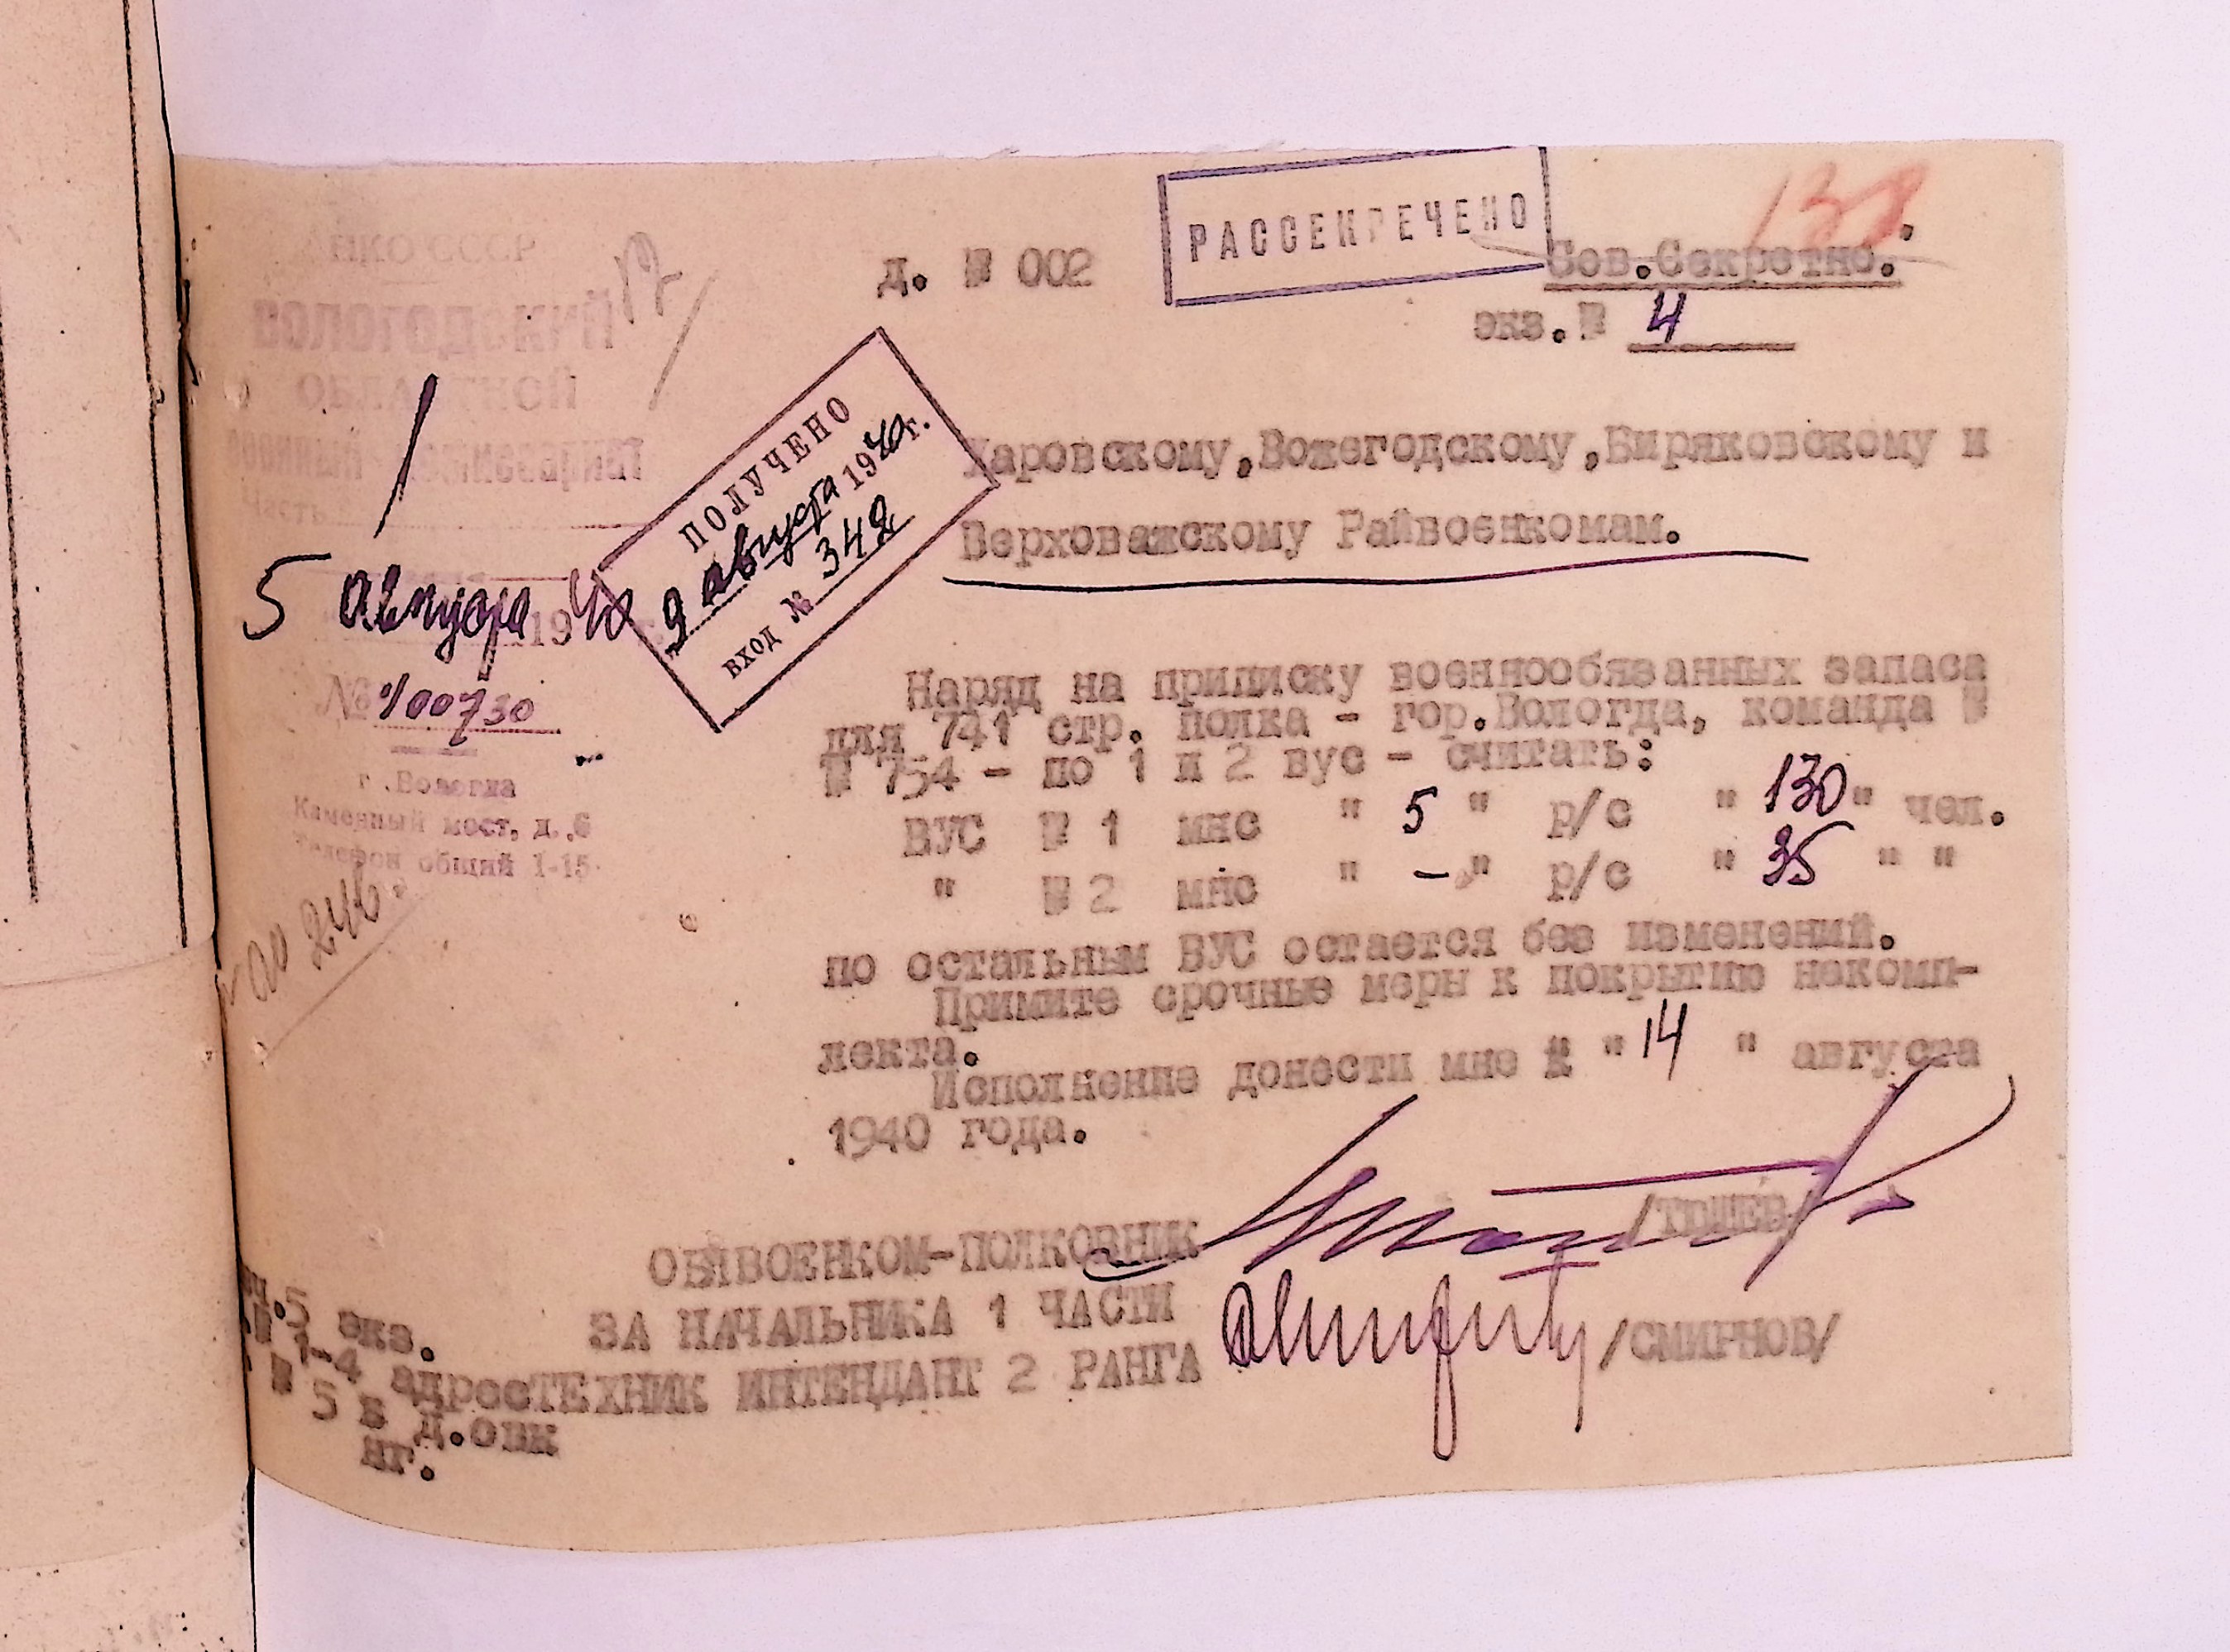 НКО СССР
ВОЛОГОДСКИЙ
ОБЛАСТНОЙ
военный комиссариат
Часть
5 августа 1940
№ 1/00730
г. Вологда
Каменный мост, д. 6
Телефон общий 1-15
00246
д. № 002
РАССЕКРЕЧЕНО
138
Сов.Секретно.
экз.№ 4
ПОЛУЧЕНО
9 августа 1940г.
вход № 342
Харовскому,Вожегодскому,Биряковскому и
Верховажскому Райвоенкомам.
Наряд на приписку военнообязанных запаса
для 741 стр. полка - гор.Вологда, команда №
№ 754 - по 1 и 2 вус - считать:
ВУС № 1 мнс " 5 " р/с " 130 " чел.
" № 2 мнс " - " р/с " 35 " "
по остальным ВУС остается без изменений.
Примите срочные меры к покрытию некомп-
лекта.
Исполнение донести мне к " 14 " августа
1940 года.
ОБЛВОЕНКОМ-ПОЛКОВНИК /ТОШЕВ/
ЗА НАЧАЛЬНИКА 1 ЧАСТИ
ТЕХНИК ИНТЕНДАНТ 2 РАНГА /СМИРНОВ/
н.5 экз.
№ 1-4 адрес
№ 5 в д.овк
нг.